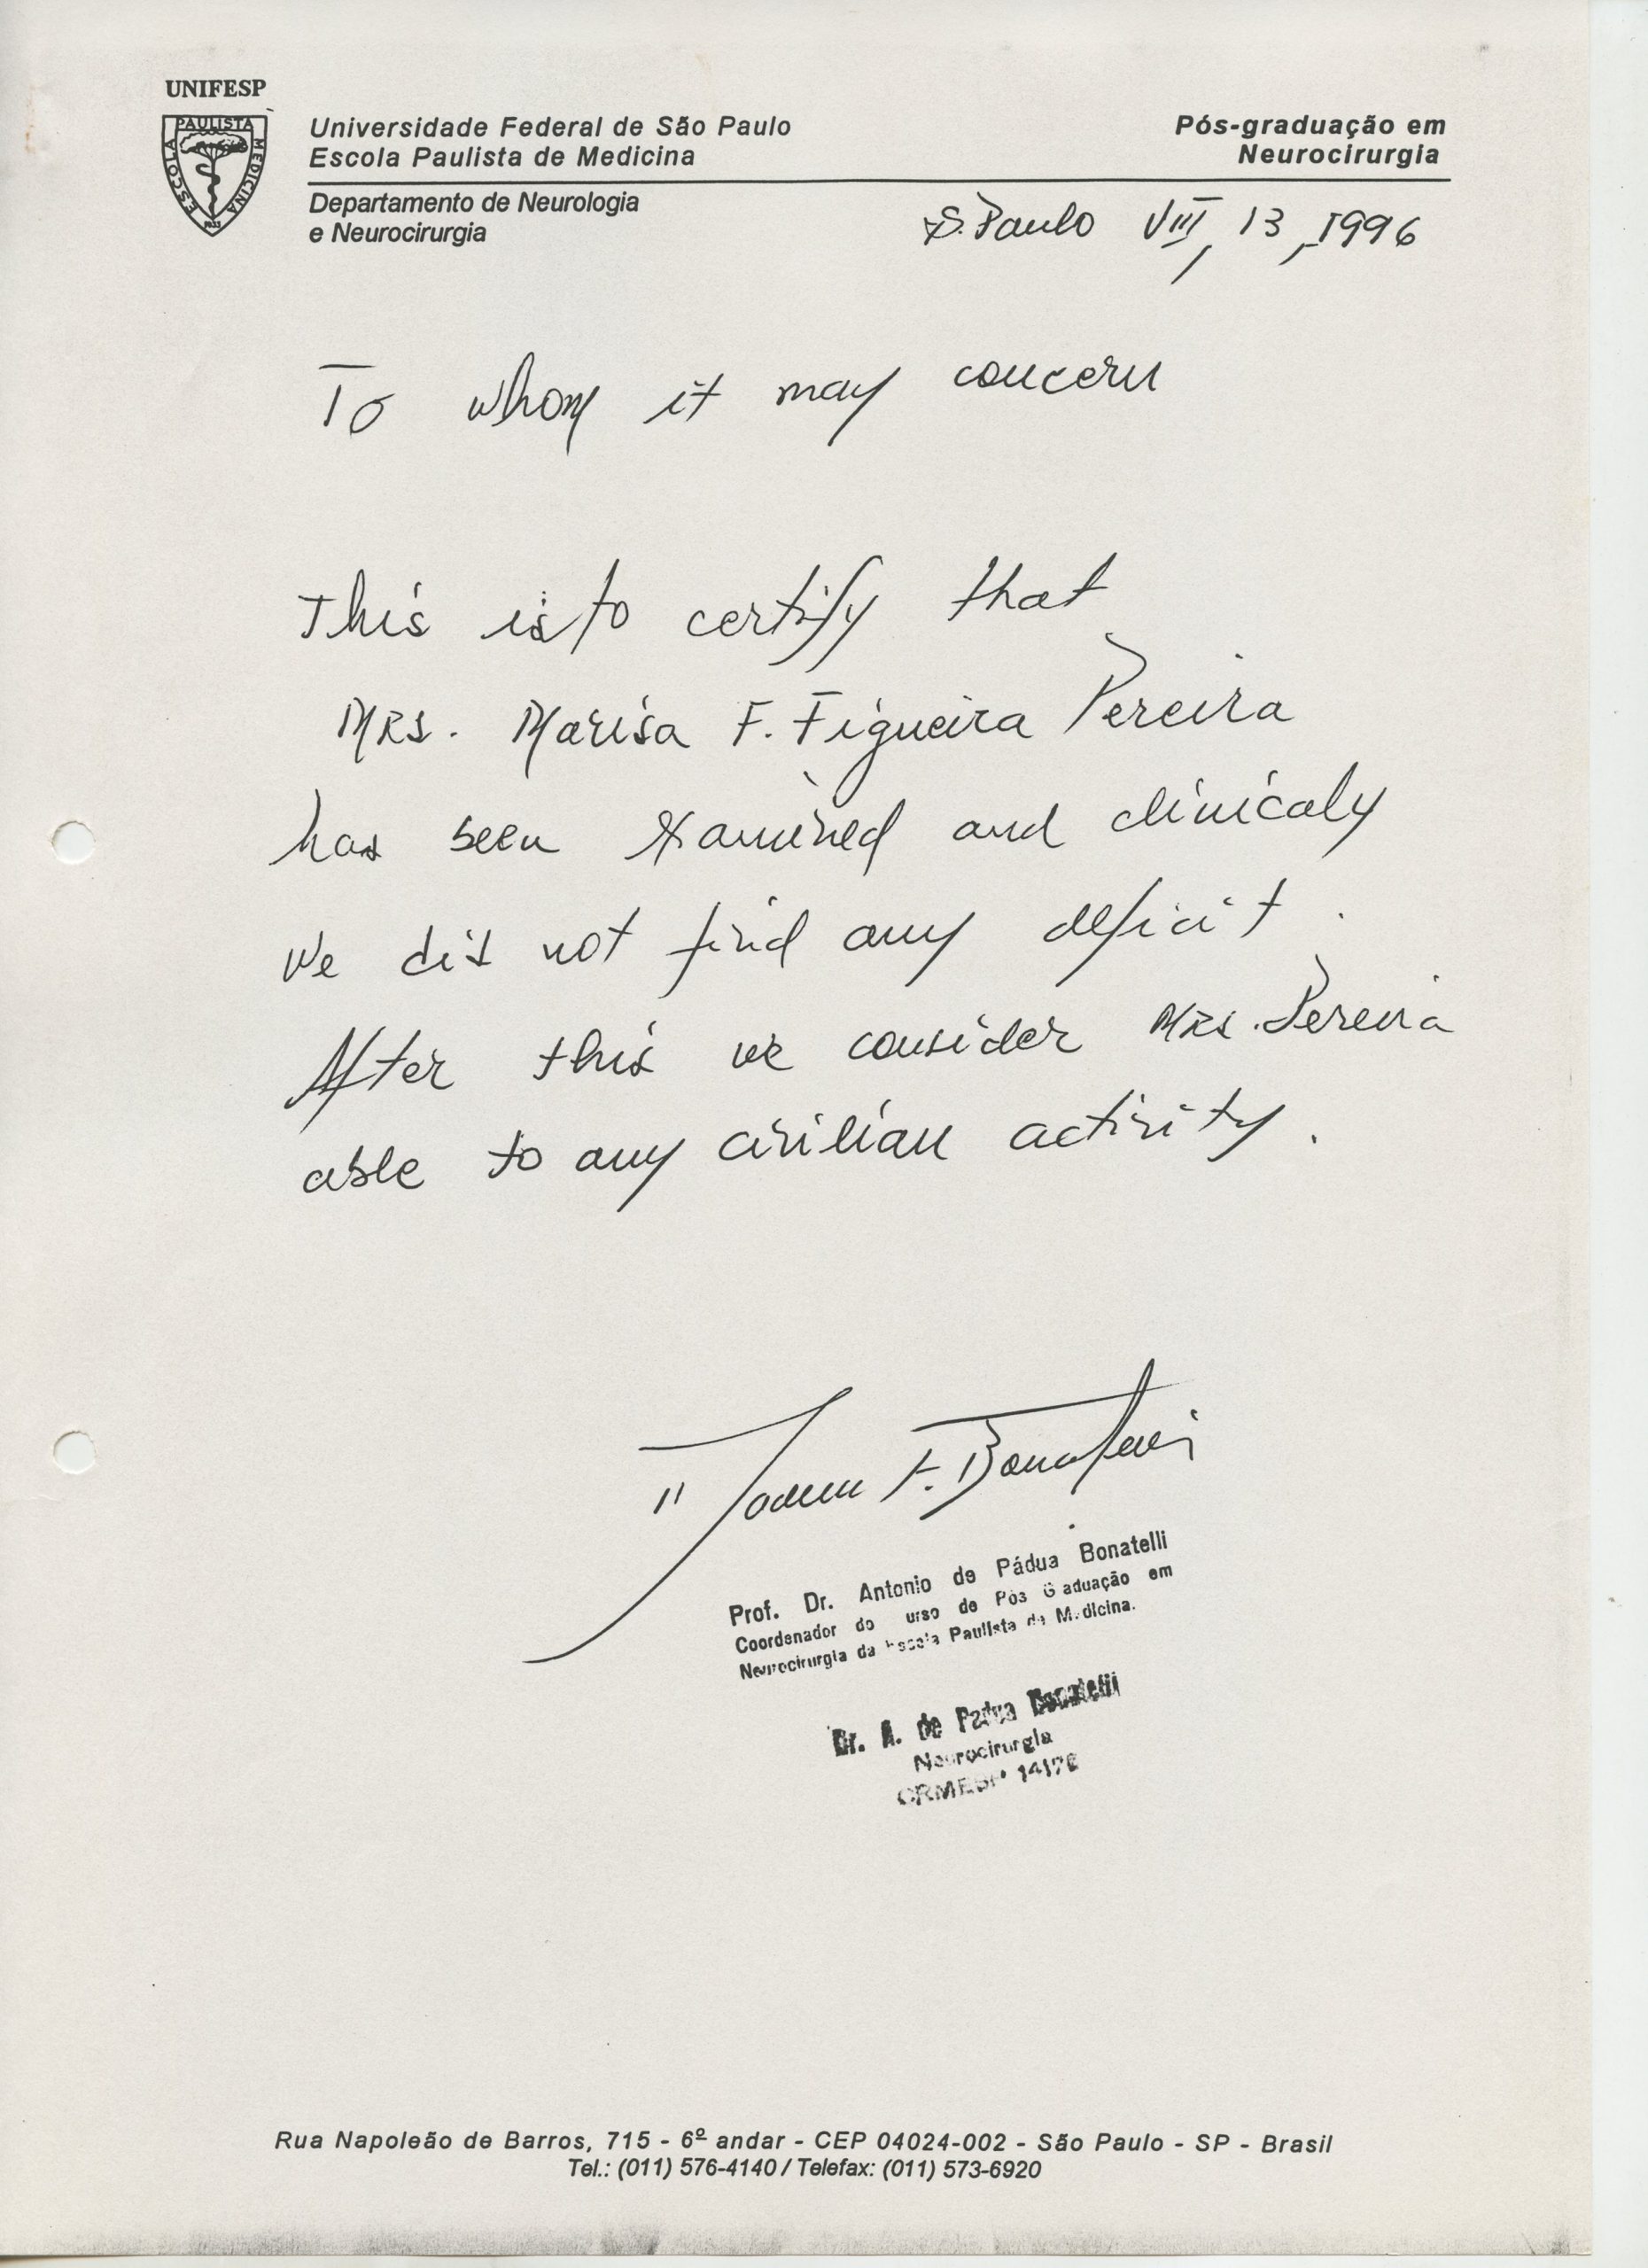 UNIFESP
ESCOLA PAULISTA MEDICINA
1933
Universidade Federal de São Paulo
Escola Paulista de Medicina
Departamento de Neurologia
e Neurocirurgia
Pós-graduação em
Neurocirurgia
S. Paulo VIII, 13, 1996
To whom it may concern
This is to certify that
MRS. Marisa F. Figueira Pereira
has been examined and clinicaly
We did not find any deficit.
After this we consider MRS. Pereira
able to any civilian activity.
Prof. Dr. Antonio de Pádua Bonatelli
Coordenador do urso de Pós G aduação em
Neurocirurgia da Escola Paulista de Medicina.
Dr. A. de Padua Bonatelli
Neurocirurgia
CRMESP
Rua Napoleão de Barros, 715 - 6º andar - CEP 04024-002 - São Paulo - SP - Brasil
Tel.: (011) 576-4140 / Telefax: (011) 573-6920